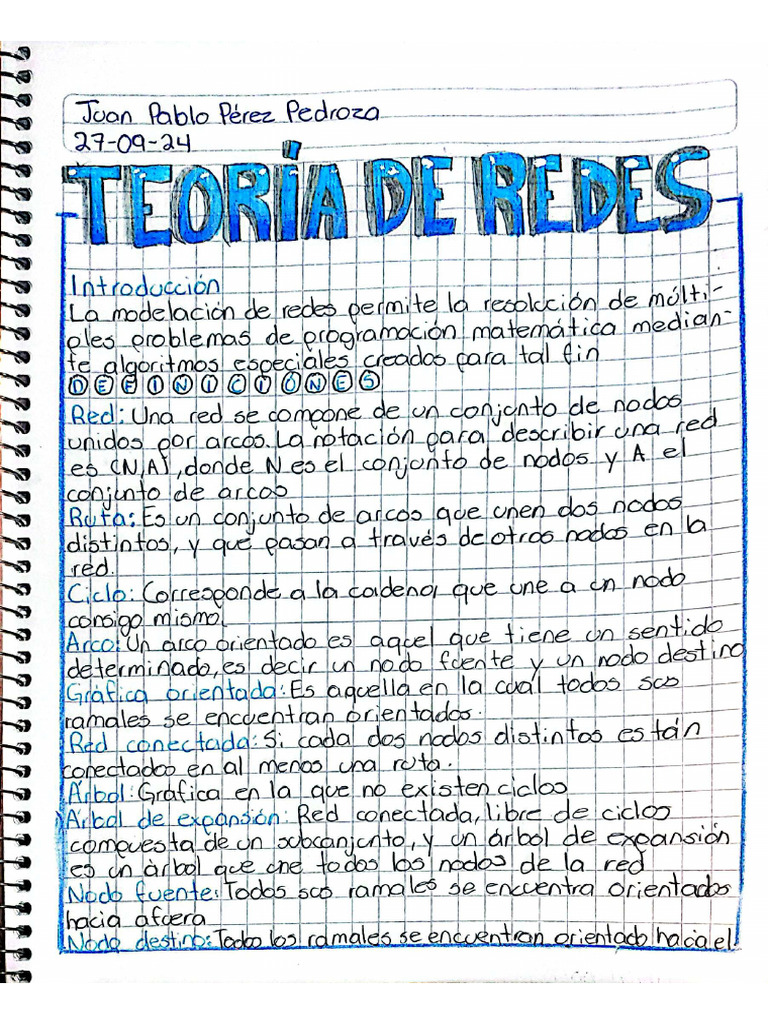 Juan Pablo Pérez Pedroza
27-09-24
TEORÍA DE REDES
Introducción
La modelación de redes permite la resolución de múlti-
ples problemas de programación matemática median-
te algoritmos especiales creados para tal fin
DEFINICIONES
Red: Una red se compone de un conjunto de nodos
unidos por arcos. La notación para describir una red
es (N,A), donde N es el conjunto de nodos y A el
conjunto de arcos
Ruta: Es un conjunto de arcos que unen dos nodos
distintos, y que pasan a través de otros nodos en la
red.
Ciclo: Corresponde a la cadena, que une a un nodo
consigo mismo.
Arco: Un arco orientado es aquel que tiene un sentido
determinado, es decir un nodo fuente y un nodo destino
Gráfica orientada: Es aquella en la cual todos sus
ramales se encuentran orientados.
Red conectada: Si cada dos nodos distintos están
conectados en al menos una ruta.
Árbol: Gráfica en la que no existen ciclos
Árbol de expansión: Red conectada, libre de ciclos
compuesta de un subconjunto, y un árbol de expansión
es un árbol que une todos los nodos de la red
Nodo fuente: Todos sus ramales se encuentra orientados
hacia afuera
Nodo destino: Todo los ramales se encuentran orientado hacia el